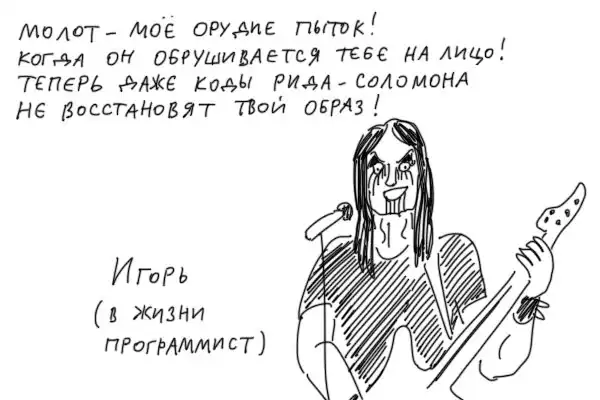 МОЛОТ - МОЁ ОРУДИЕ ПЫТОК!
КОГДА ОН ОБРУШИВАЕТСЯ ТЕБЕ НА ЛИЦО!
ТЕПЕРЬ ДАЖЕ КОДЫ РИДА-СОЛОМОНА
НЕ ВОССТАНОВЯТ ТВОЙ ОБРАЗ!
ИГОРЬ
(В ЖИЗНИ
ПРОГРАММИСТ)